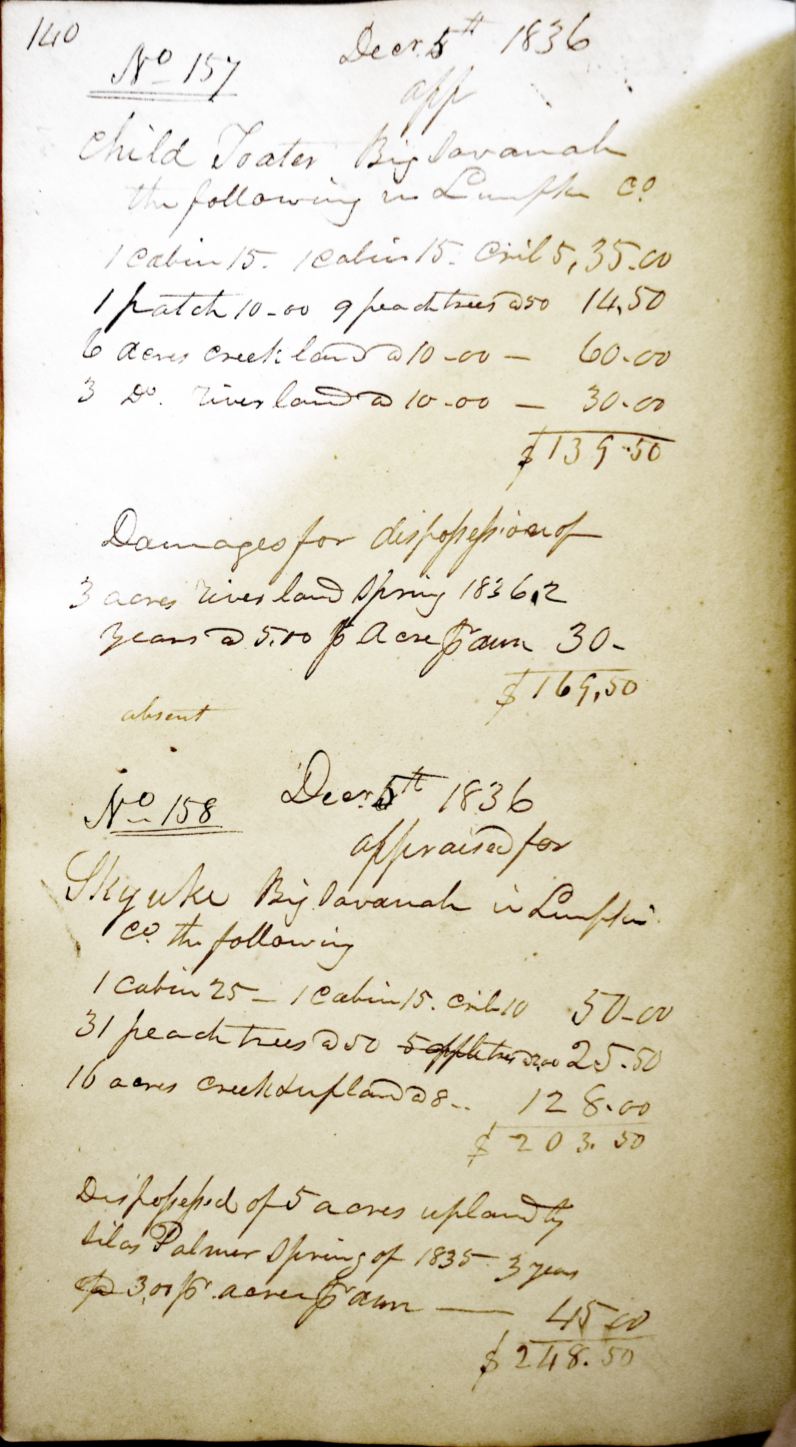 140
No 157 Decr. 5th 1836
app
Child Toater Big Savanah
the following in Lumpkin Co
1 cabin 15. 1 cabin 15. Crib 5, 35.00
1 patch 10-00 9 peach trees @ 50 14,50
6 acres creek land @ 10-00 — 60.00
3 Do. river land @ 10-00 — 30.00
$139.50
Damages for dispossession of
3 acres river land Spring 1836, 2
years @ 5.00 pr Acre pr ann 30-
$169,50
absent
No 158 Decr. 5th 1836
appraised for
Skyuke Big Savanah in Lumpkin
Co. the following
1 cabin 25 — 1 cabin 15. crib 10 50-00
31 peach trees @ 50 5 apple trees @ 2.00 25.50
16 acres creek & upland @ 8 -- 128.00
$203.50
Dispossessed of 5 acres upland by
Silas Palmer Spring of 1835 3 years
@ 3,00 pr. acre pr ann — 45.00
$248.50